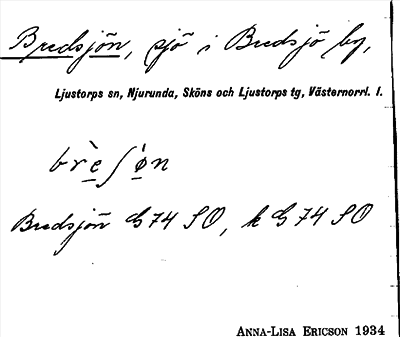 Bredsjön, sjö i Bredsjö by,
Ljustorps sn, Njurunda, Sköns och Ljustorps tg, Västernorrl. l.
brὲ̱ʃǿ̱n
Bredsjön G74 SO, k G74 SO
ANNA-LISA ERICSON 1934